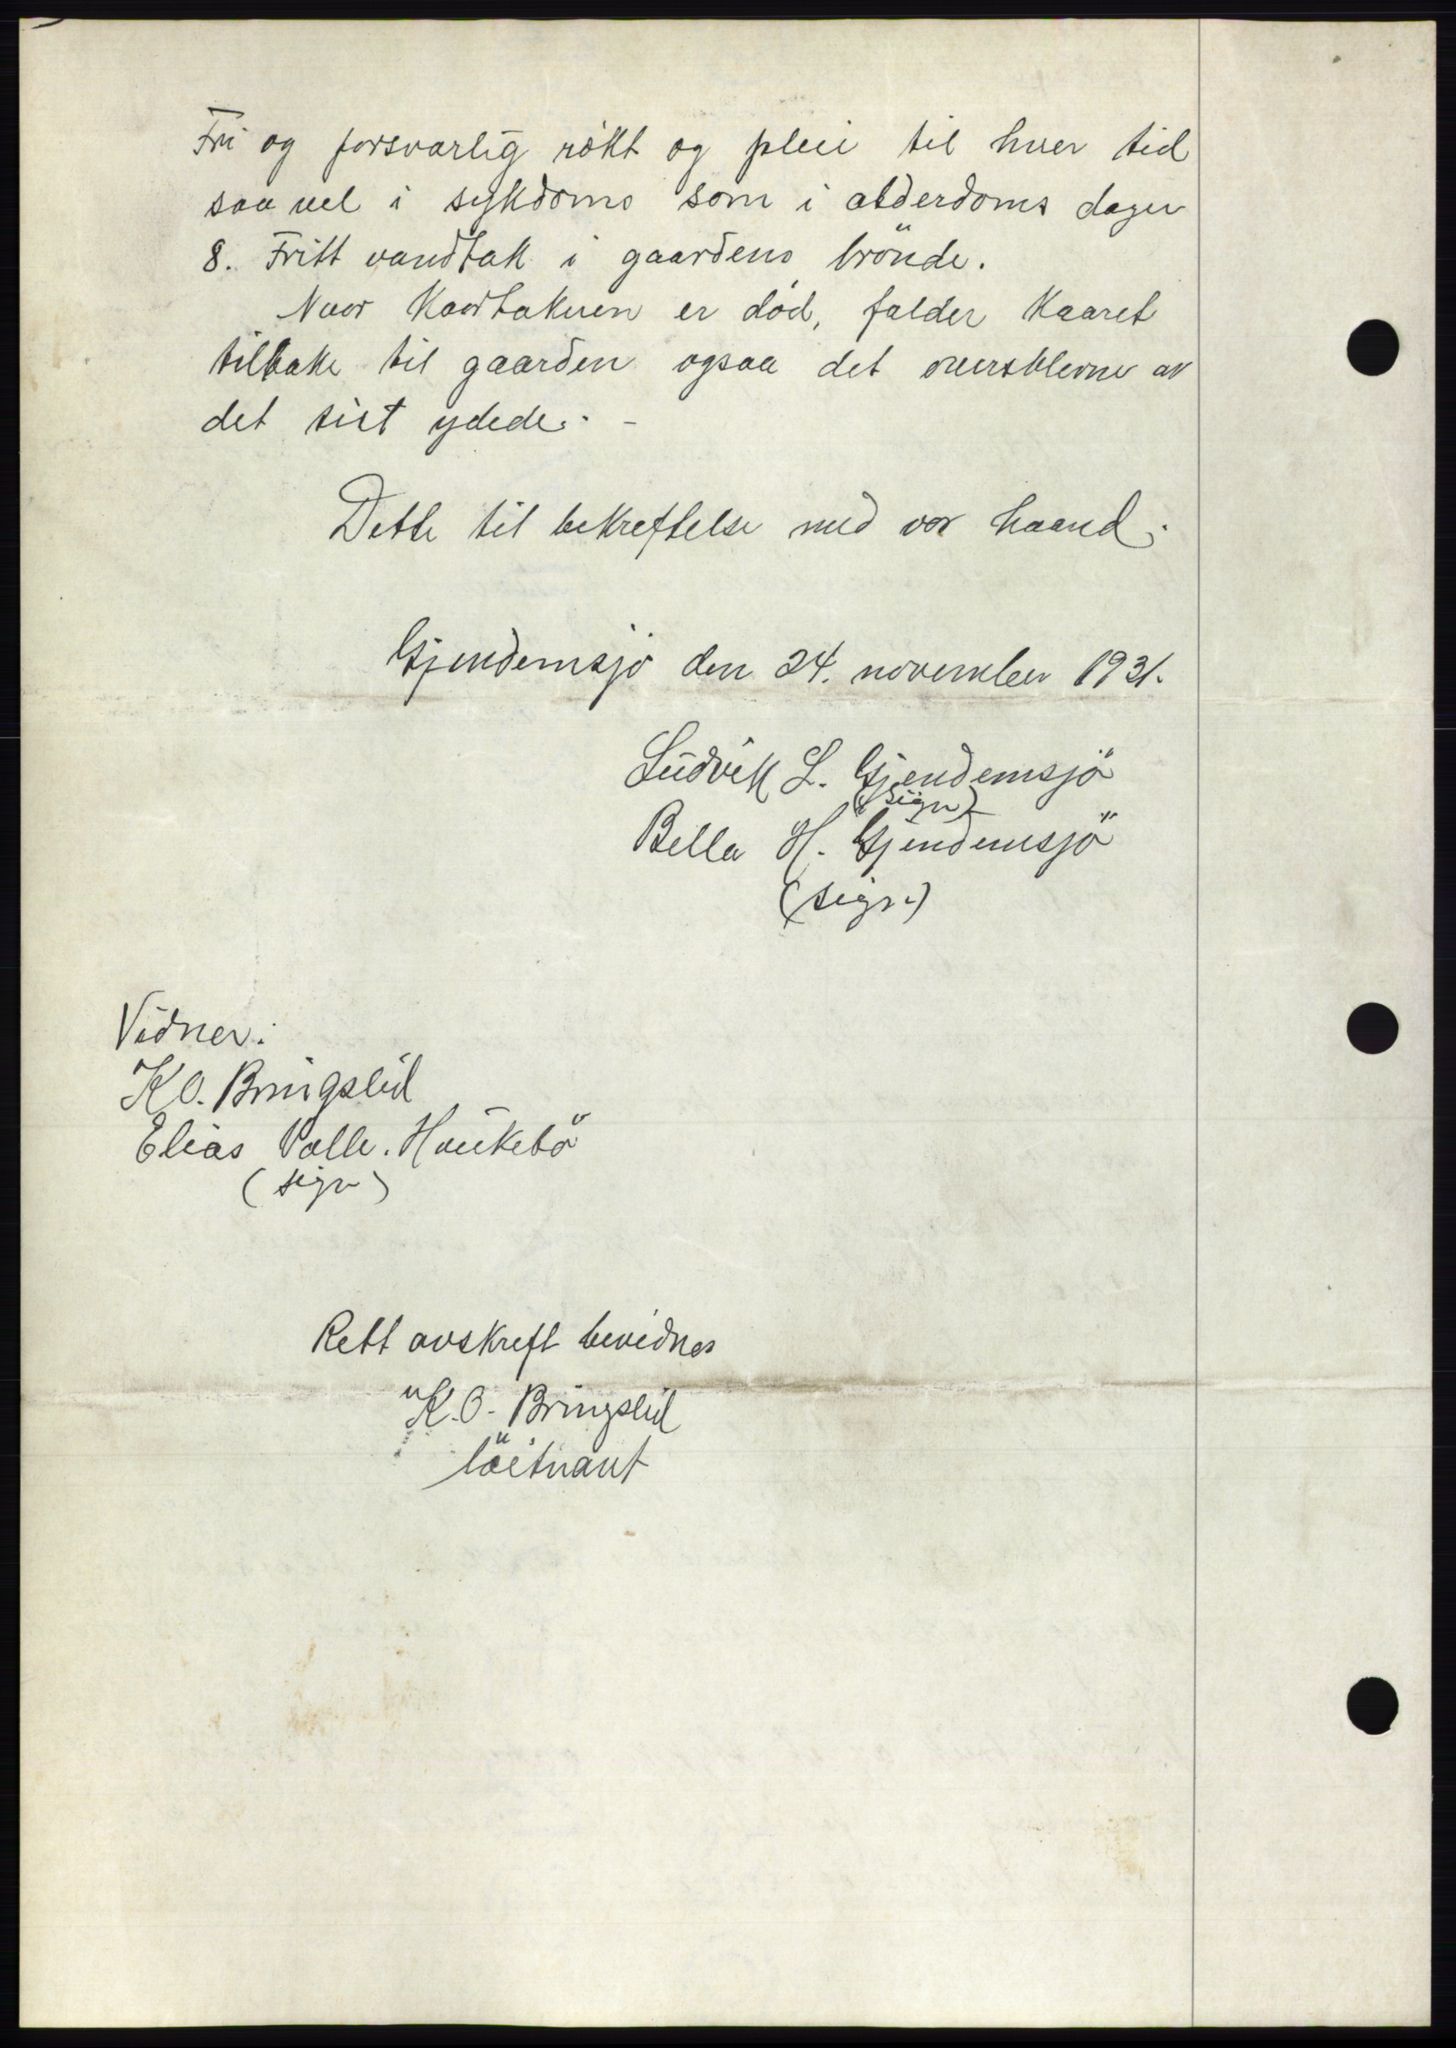 Fri og forsvarlig rökt og pleie til hver tid
saavel i sykdoms som i alderdoms dager
8. Fritt vandtak i gaardens brönde.
Naar Kaartakeren er död, falder Kaaret
tilbake til gaarden ogsaa det overblevne av
det sist ydede. -
Dette til bekreftelse med vor haand.
Gjendemsjö den 24. november 1931.
Ludvik L. Gjendemsjö
(sign)
Bella H. Gjendemsjö
(sign.)
Vidner:
K O. Bringslid
Elias Valle. Haukebö
(sign)
Rett avskreft bevidnes
K. O. Bringslid
löitnant